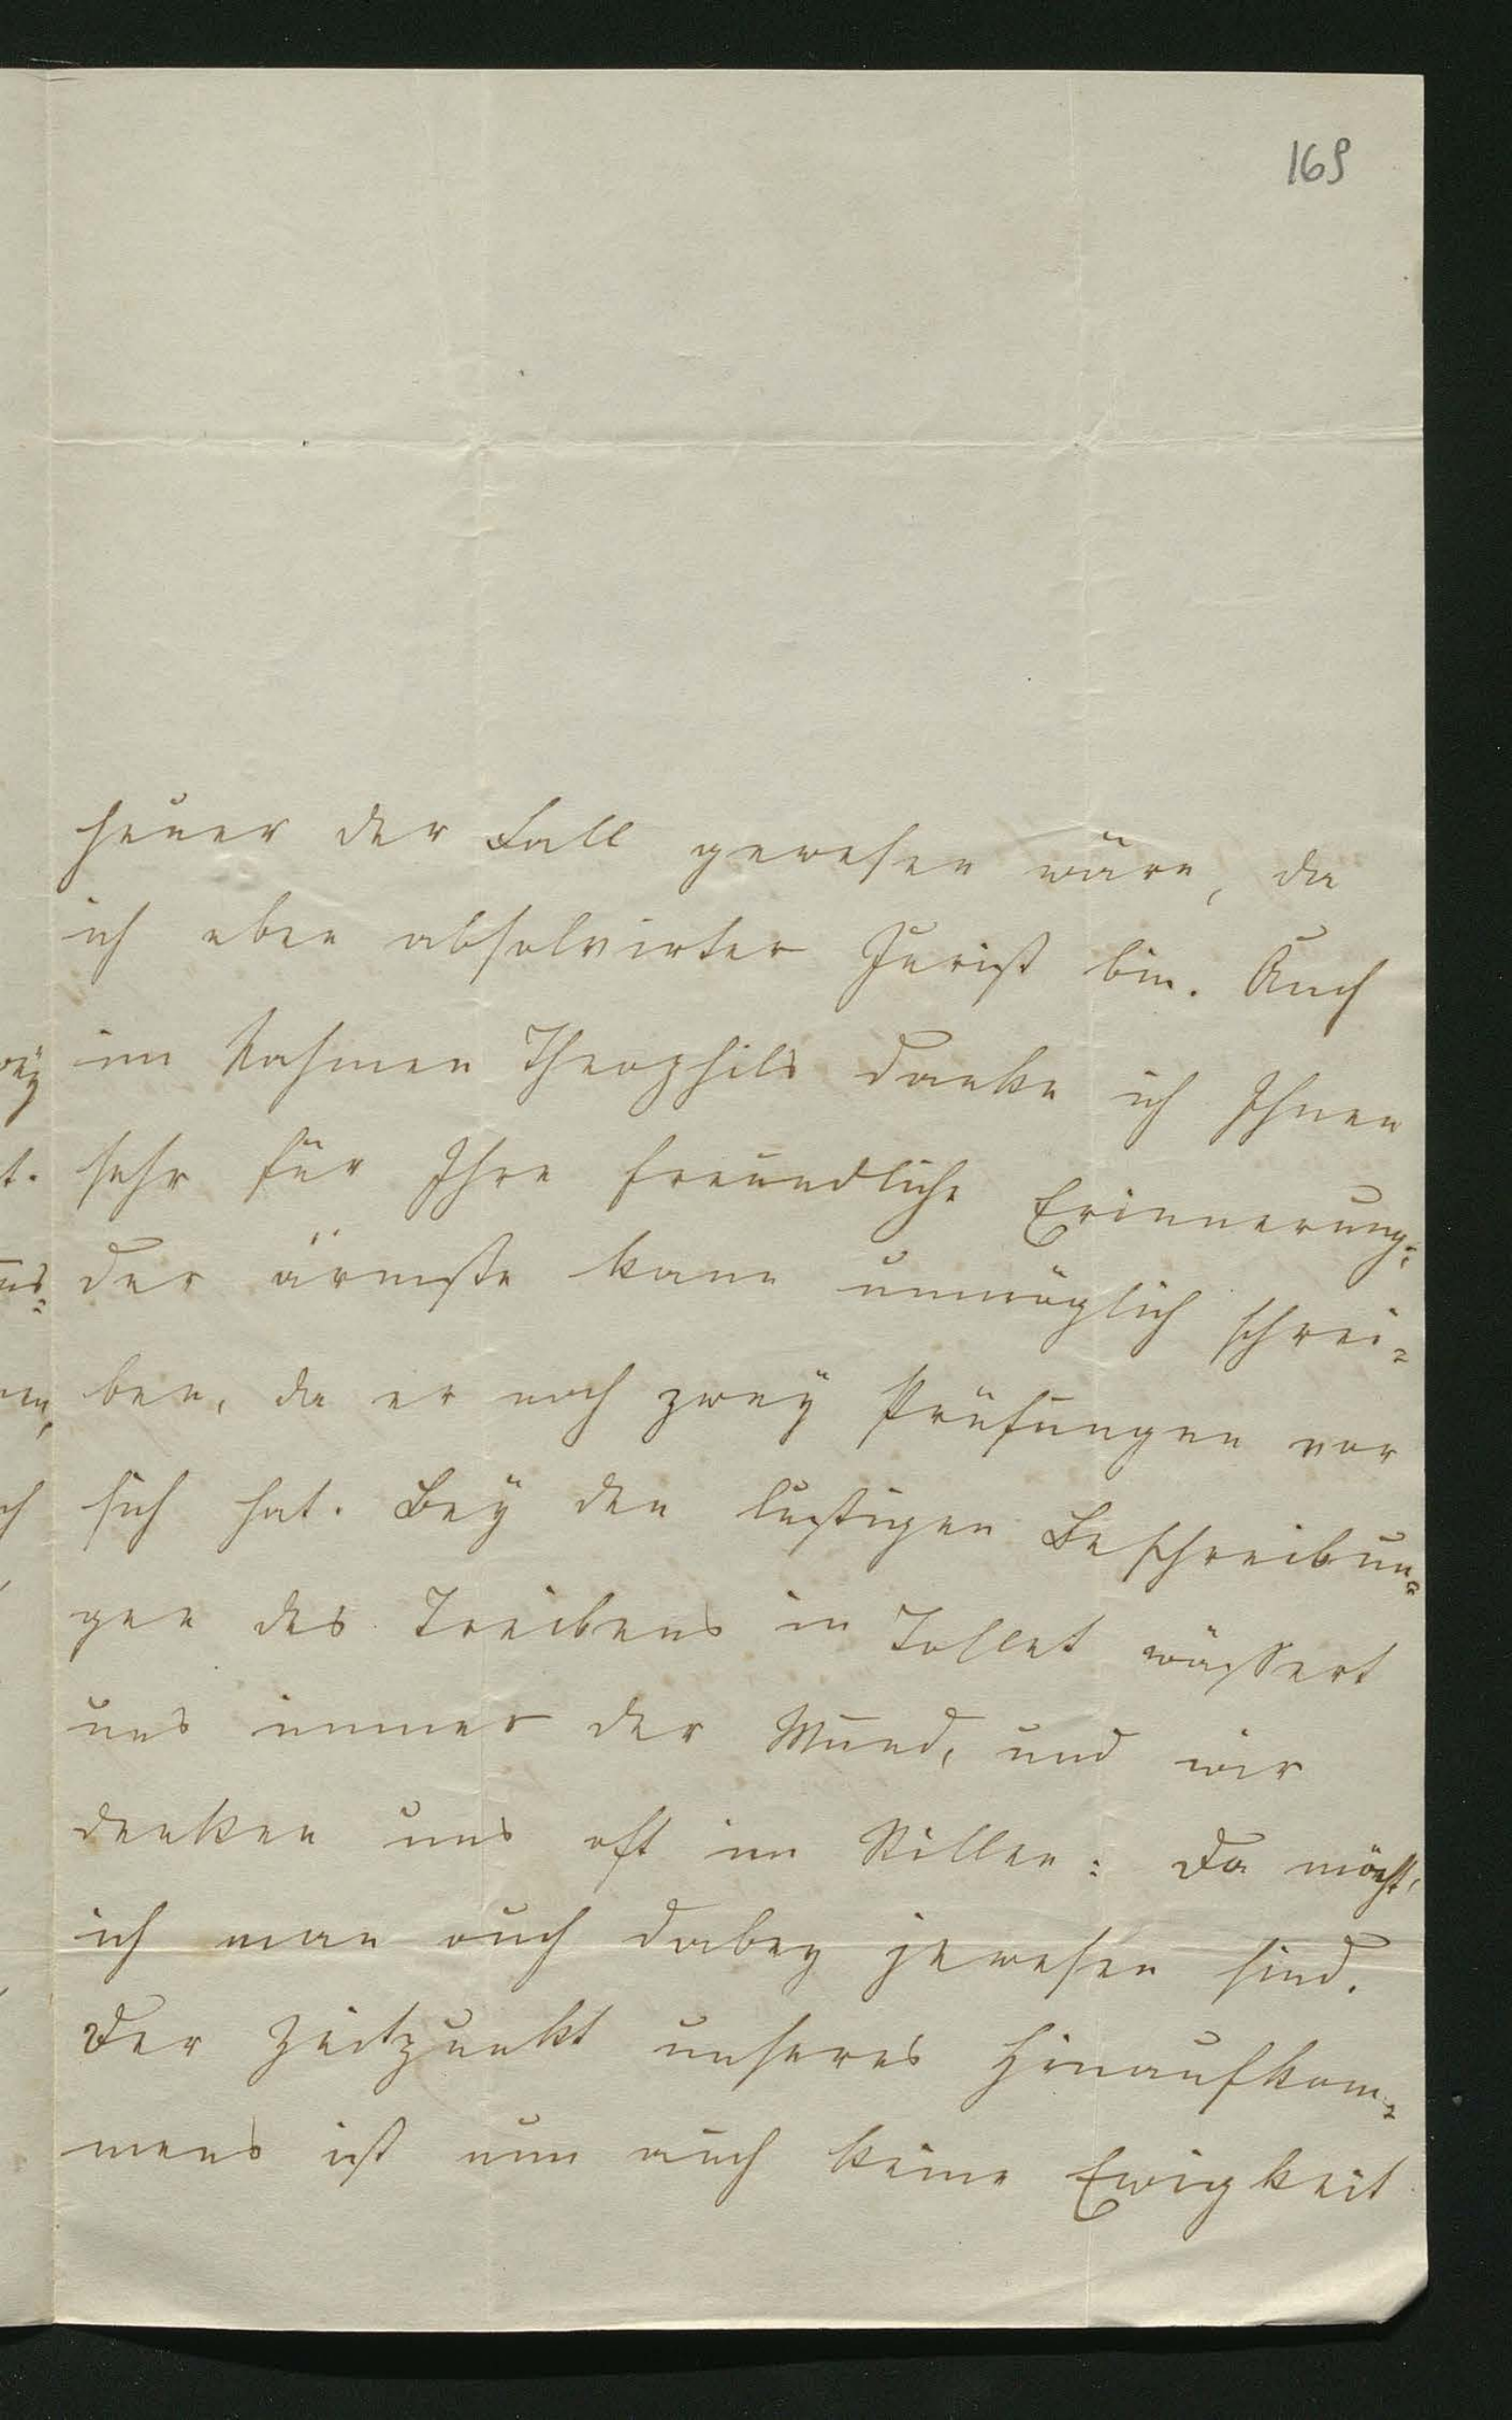 169
heuer der Fall gewesen wäre, da
ich eben absolvirter Jurist bin. Auch
im Nahmen Theophils danke ich Ihnen
sehr für Ihre freundliche Erinnerung;
der ärmste kann unmöglich schrei-
ben, da er noch zwey Prüfungen vor
sich hat. Bey den lustigen Beschreibun-
gen des Treibens in Tollet wässert
uns immer der Mund, und wir
denken uns oft im Stillen: Da möcht'
ich man auch dabey jewesen sind.
Der Zeitpunkt unseres Hinaufkom-
mens ist nun auch keine Ewigkeit